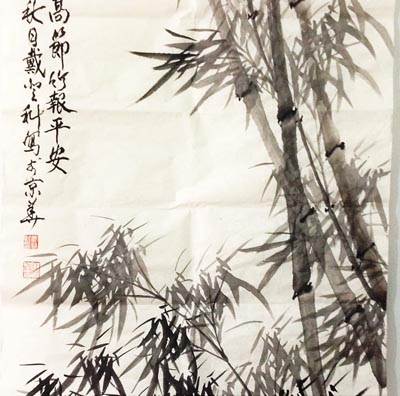 高節竹報平安
秋月戴登科寫于京華